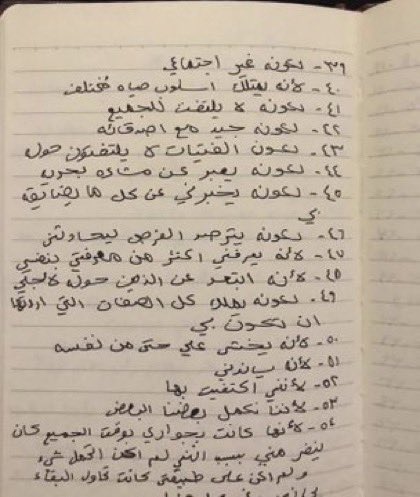 ٣٩- لكونه غير اجتماعي
٤٠- لأنه يمتلك اسلوب حياه مختلف
٤١- لكونه لا يلتفت للجميع
٢٢- لكونه جيد مع اصدقائه
٢٣- لكون الفتيات لا يلتفتون حوله
٤٤- لكونه يعبر عن مشاعره بحرية
٤٥- لكونه يخبرني عن كل ما يضايقه
بي
٤٦- لكونه يترصد الفرص ليحادثني
٤٧- لأنه يعرفني اكثر من معرفتي بنفسي
٤٨- لأنه ابتعد عن الذين حوله لأجلي
٤٩- لكونه يملك كل الصفات التي اردتها
ان تكون بي
٥٠- لأنه يخشى علي حتى من نفسه
٥١- لأنه يساندني
٥٢- لأنني اكتفيت بها
٥٣- لأننا نكمل بعضنا البعض
٥٤- لأنها كانت بجواري بوقت الجميع كان
ينفر مني بسبب انني لم اكن اتحمل شيء
ولم اكن على طبيعتي كانت تحاول البقاء